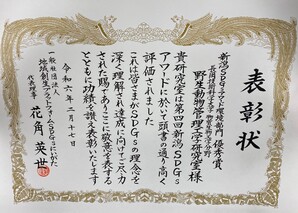 表彰状
新潟SDGsアワード環境部門 優秀賞
長岡技術科学大学 物質生物工学分野
野生動物管理工学研究室様
貴研究室は第四回新潟SDGs
アワードに於いて頭書の通り高く
評価されました
これは皆さまがSDGsの理念を
深く理解され達成に向けてご尽力
された賜でありここに敬意を表する
とともに功績を讃え表彰いたします
令和六年二月十七日
一般社団法人
地域創生プラットフォームSDGsにいがた
代表理事 花角英世